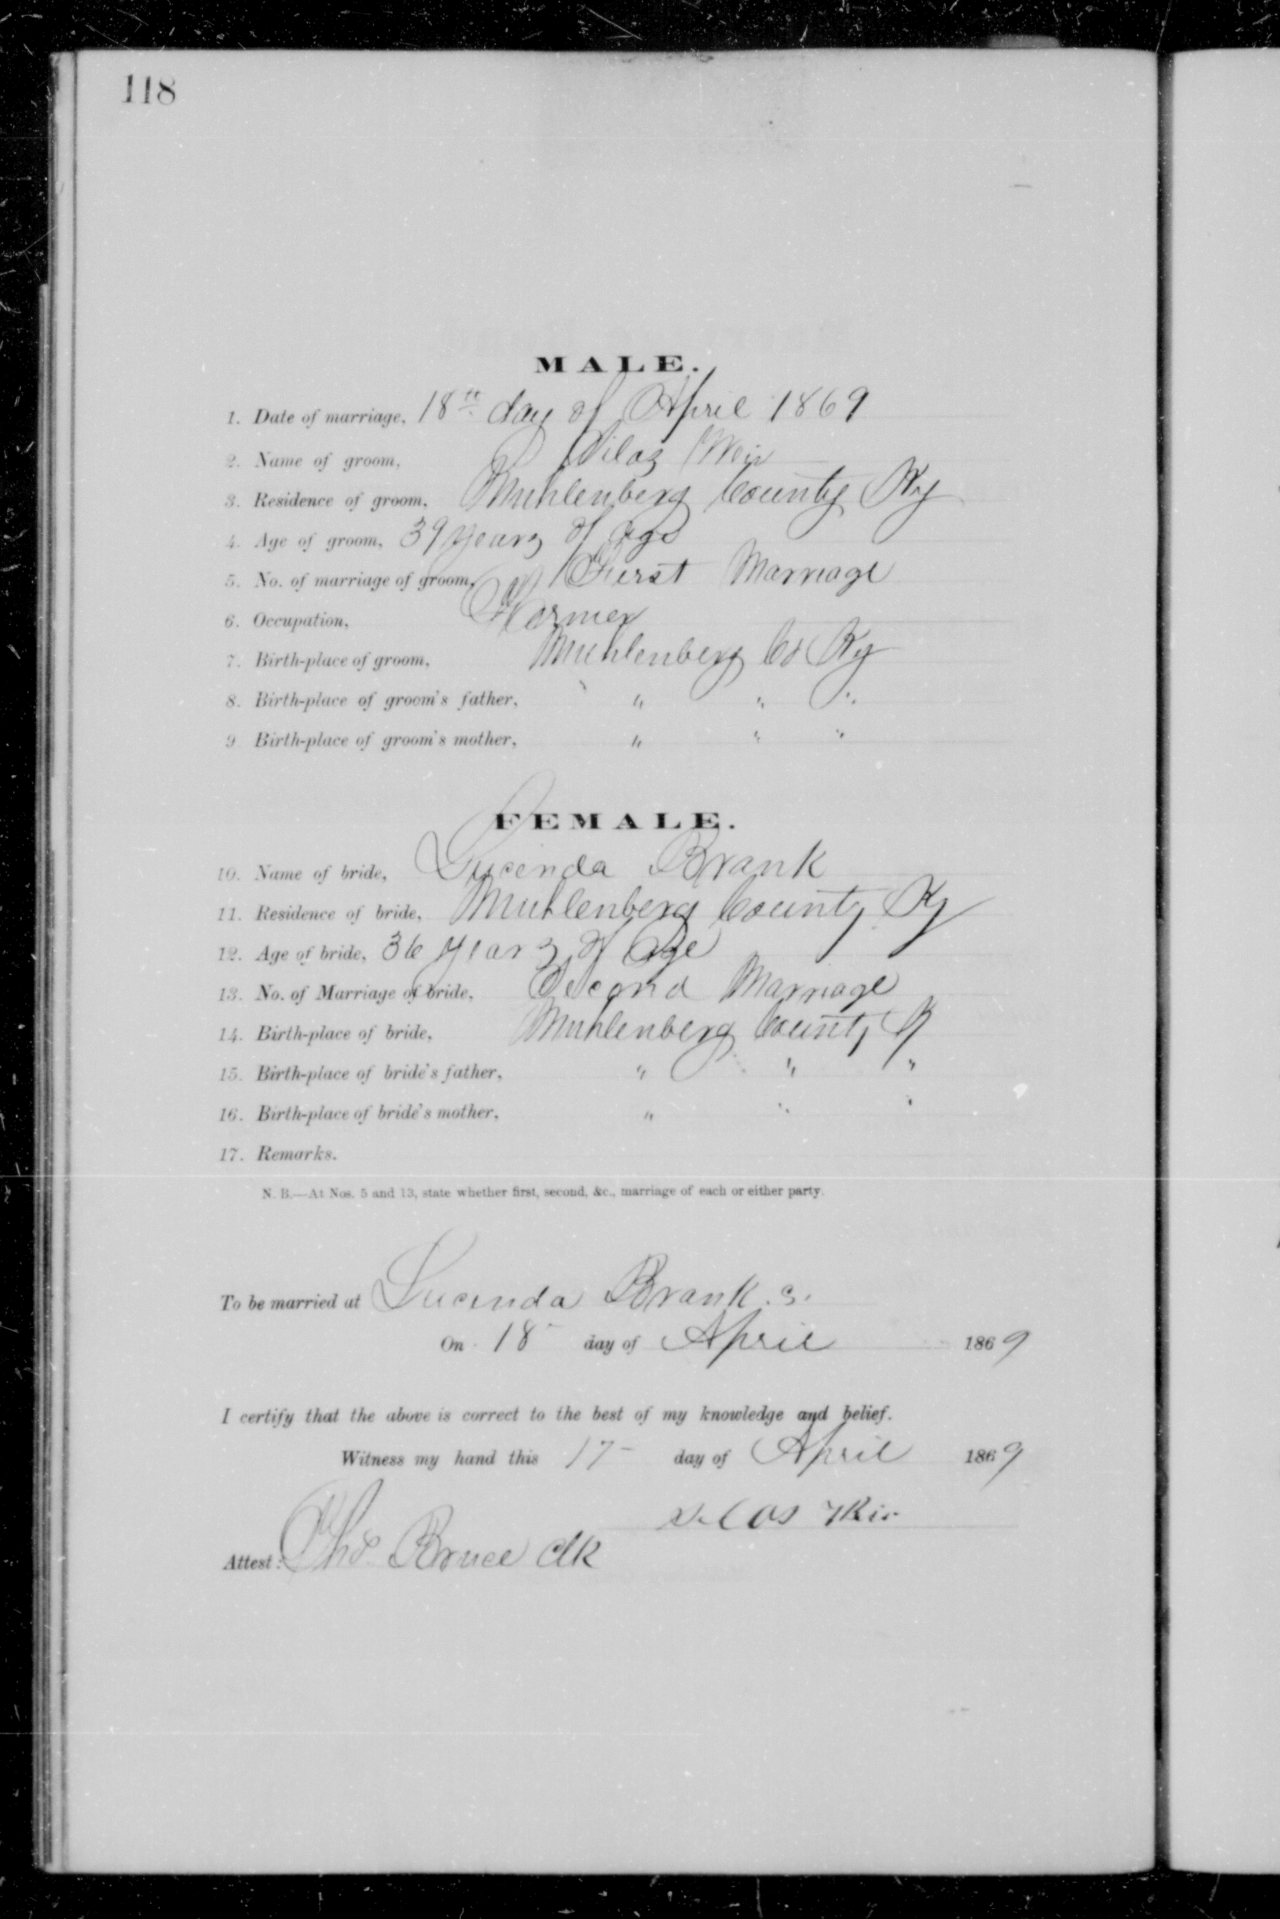 118
MALE.
1. Date of marriage, 18th day of April 1869
2. Name of groom, Silas Weir
3. Residence of groom, Muhlenberg County Ky
4. Age of groom, 39 years of age
5. No. of marriage of groom, First Marriage
6. Occupation, Farmer
7. Birth-place of groom, Muhlenberg Co Ky
8. Birth-place of groom's father, " " "
9 Birth-place of groom's mother, " " "
FEMALE.
10. Name of bride, Lucinda Brank
11. Residence of bride, Muhlenberg County Ky
12. Age of bride, 36 years of Age
13. No. of Marriage of bride, Second Marriage
14. Birth-place of bride, Muhlenberg County K
15. Birth-place of bride's father, " " "
16. Birth-place of bride's mother, " " "
17. Remarks.
N. B.—At Nos. 5 and 13, state whether first, second, &c., marriage of each or either party.
To be married at Lucinda Brank.s.
On 18 day of April 1869
I certify that the above is correct to the best of my knowledge and belief.
Witness my hand this 17 day of April 1869
Silas Weir
Attest: Thos. Bruce Clk